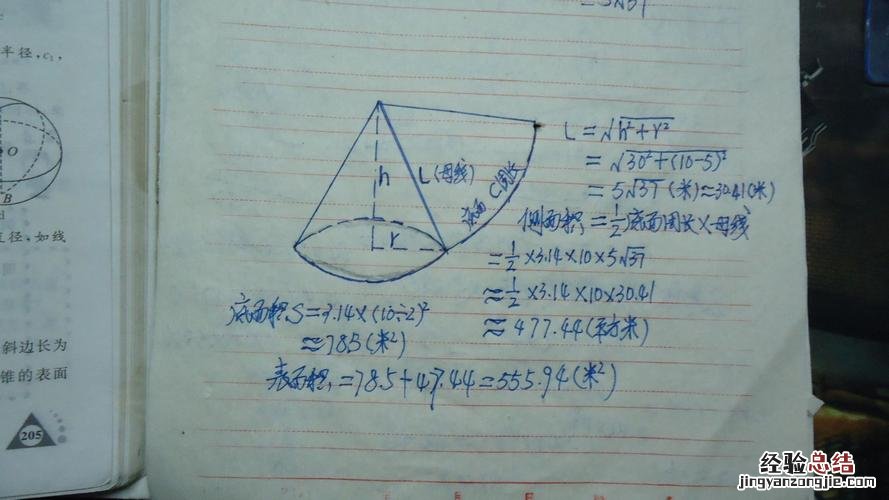 =5√37
半径,c₁,
O
B
d
直径、如线
斜边长为
锥的表面
205
h
r
L(母线)
底面C周长
L=√h²+r²
=√30²+(10-5)²
=5√37(米)≈30.41(米)
侧面积=1/2底面周长×母线
=1/2×3.14×10×5√37
≈1/2×3.14×10×30.41
≈477.44(平方米)
底面积S=3.14×(10÷2)²
≈78.5(米²)
表面积=78.5+47.44=555.94(米²)
经验总结
jingyanzongjie.com